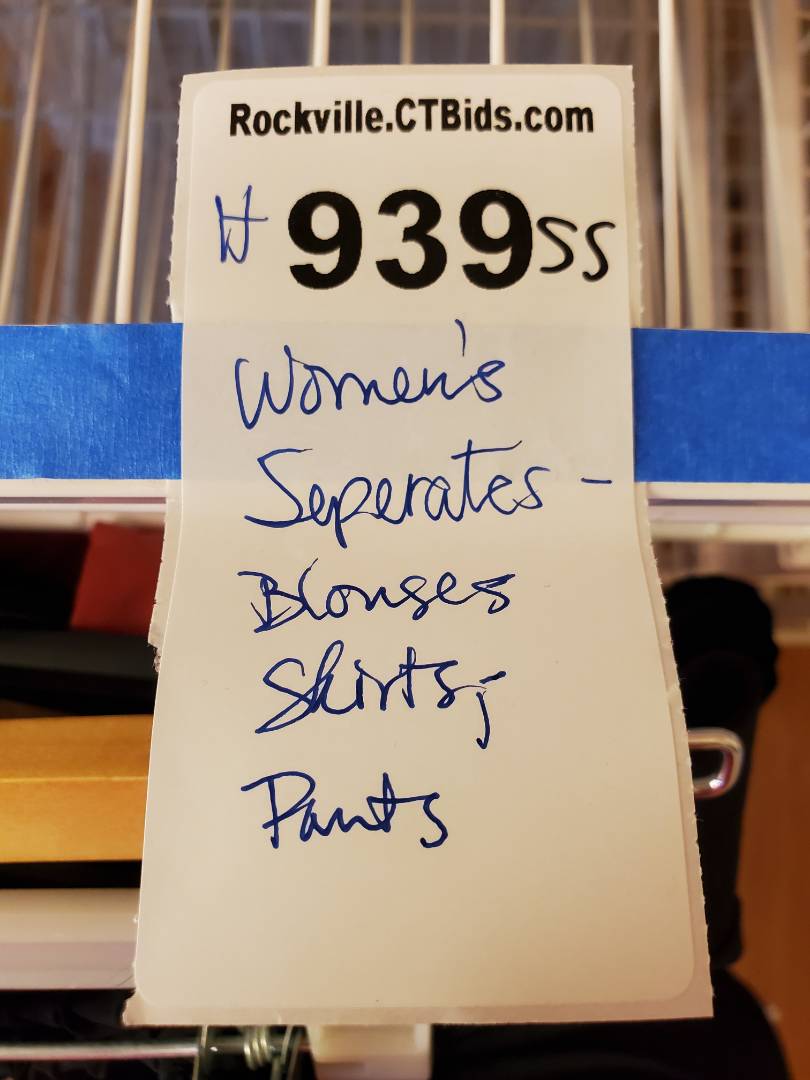 Rockville.CTBids.com
# 939ss
Women's
Seperates -
Blouses
Skirts,
Pants